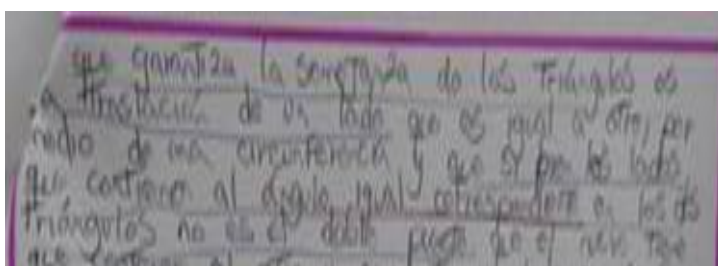 que garantiza la semejanza de los triángulos es
la traslación de un lado que es igual a otro, por
medio de una circunferencia y que si por los lados
que contienen al ángulo igual correspondiente en los dos
triángulos no es el doble puede que el
que contienen al